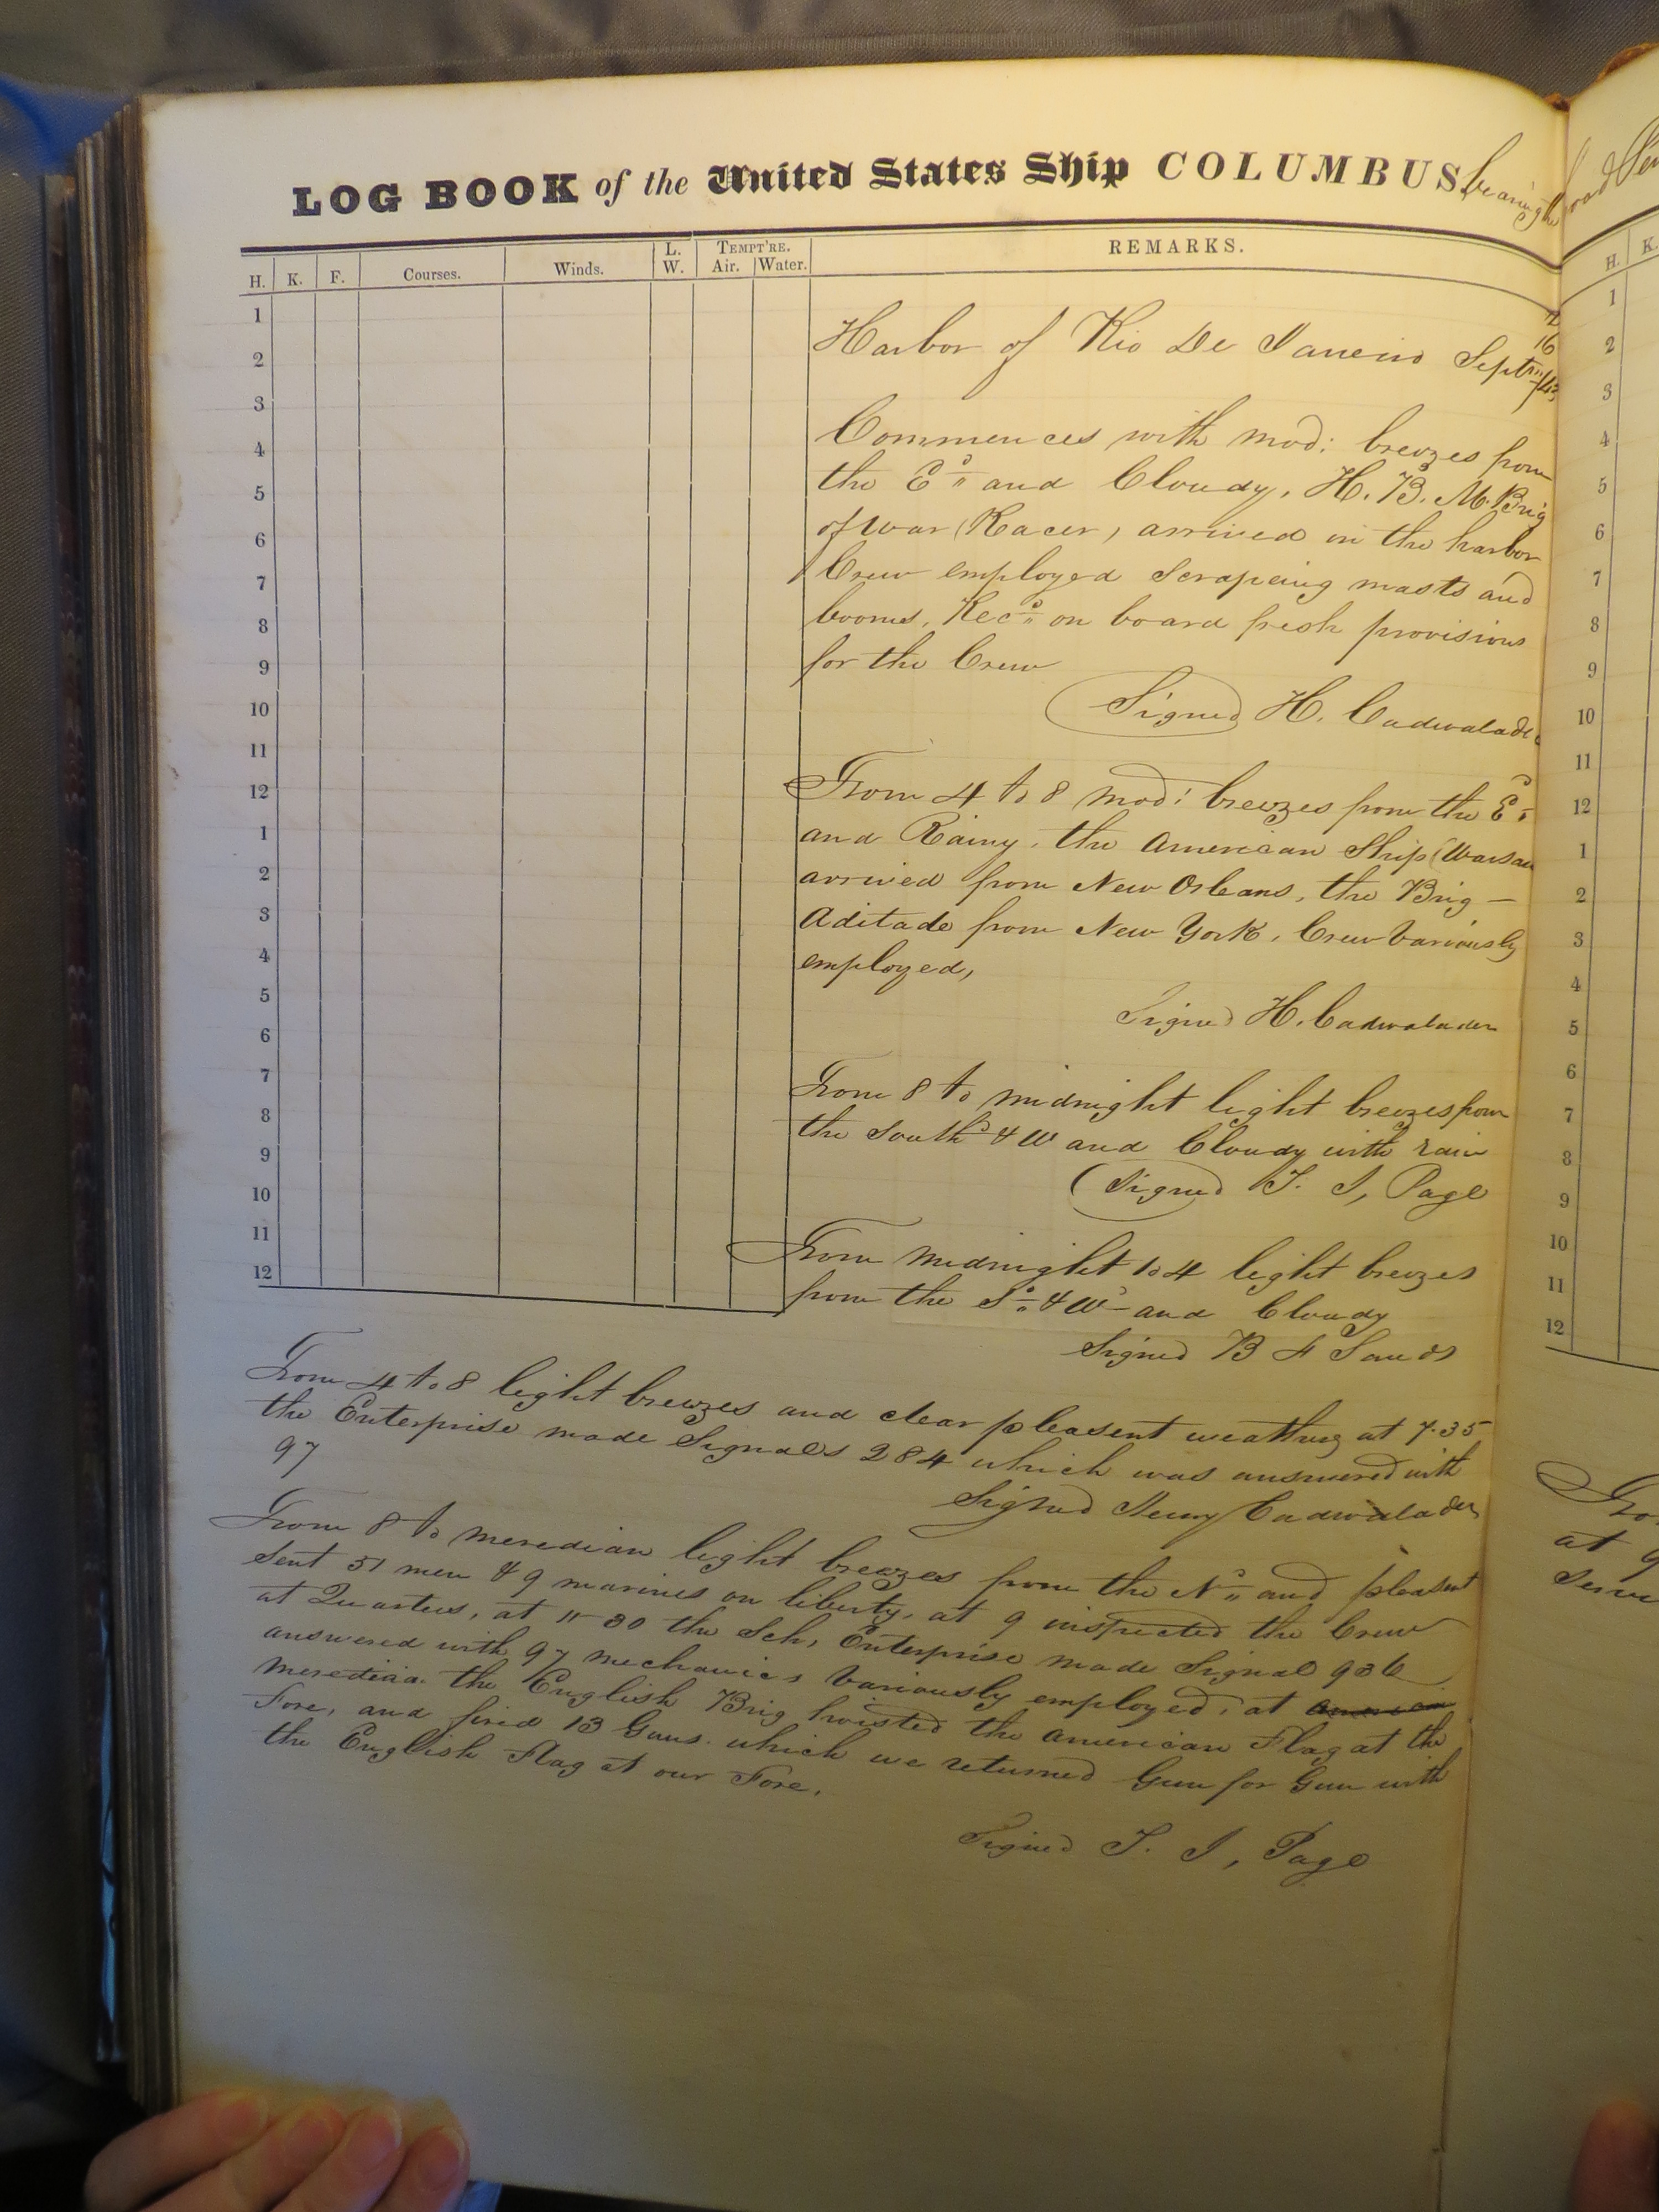 LOG BOOK of the United States Ship COLUMBUS bearing
H. K. F. Courses. Winds. L. W. TEMPT'RE. Air. Water. REMARKS.
1
2
3
4
5
6
7
8
9
10
11
12
1
2
3
4
5
6
7
8
9
10
11
12
Harbor of Rio De Janeiro Sept 16 /43
Commences with mod: breezes from
the Ed and Cloudy, H. B. M. Brig
of War (Racer) arrived in the harbor
Crew employed Scrapeing masts and
booms, Recd on board fresh provisions
for the Crew
Signed H. Cadwalader
From 4 to 8 mod: breezes from the Ed
and Rainy, the American Ship (Warsaw
arrived from New Orleans, the Brig —
Aditade from New York, Crew Variously
employed,
Signed H. Cadwalader
From 8 to midnight light breezes from
the Southd & W and Cloudy with rain
(Signed T. J, Page
From Midnight to 4 light breezes
from the Sd & Wd and Cloudy
Signed B F Sands
From 4 to 8 light breezes and clear pleasent weather at 7.35
the Enterprise made Signals 284 which was answered with
97
Signed Henry Cadwalader
From 8 to meredian light breezes from the Nd and pleasent
Sent 51 men & 9 marines on liberty, at 9 inspected the Crew
at Quarters, at 11-30 the Sch, Enterprise made Signal 936
answered with 97 mechanics Variously employed, at American
meredian the English Brig hoisted the American Flag at the
Fore, and fired 13 Guns. which we returned Gun for Gun with
the English Flag at our Fore.
Signed T. J, Page
H. K.
1
2
3
4
5
6
7
8
9
10
11
12
1
2
3
4
5
6
7
8
9
10
11
12
at 9